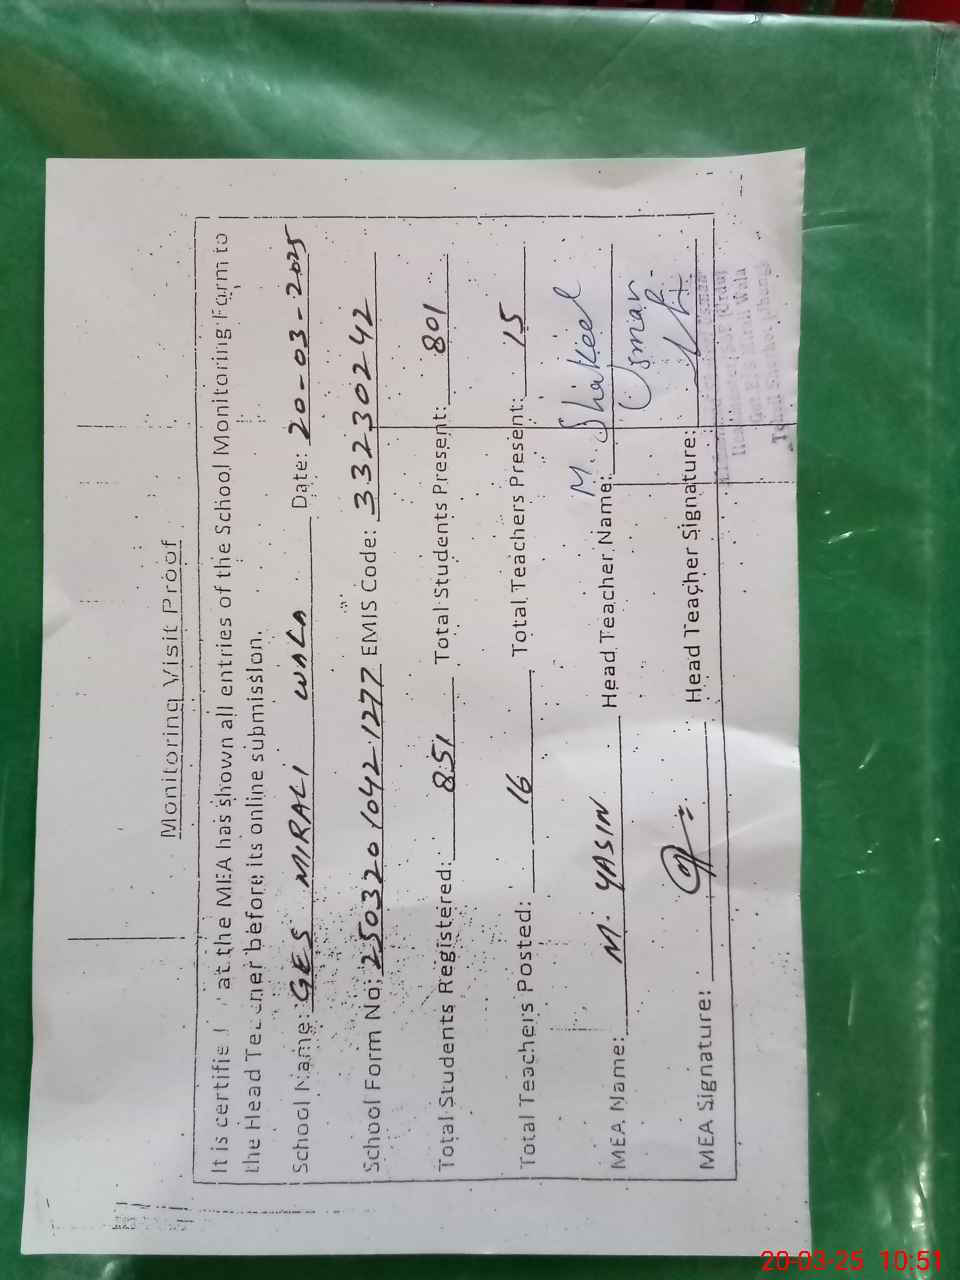 Monitoring Visit Proof
It is at the MEA has shown all entries of the School Monitoring Form to
the Head before its online submission.
School Name: GES MIRALI WALA Date: 20-03-2025
School Form No: 250320 1042 1277 EMIS Code: 33230242
Total Students Registered: 851 Total Students Present: 801
Total Teachers Posted: 16 Total Teachers Present: 15
MEA Name: M. YASIN Head Teacher Name: M. Shakeel
Usman
MEA Signature: Head Teacher Signature:
20-03-25 10:51